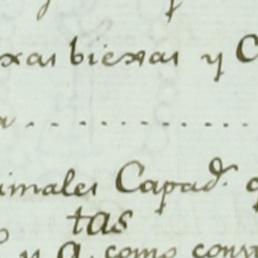 xas biexas y C
nimales Capad.ˢ q
tas
y q. como const